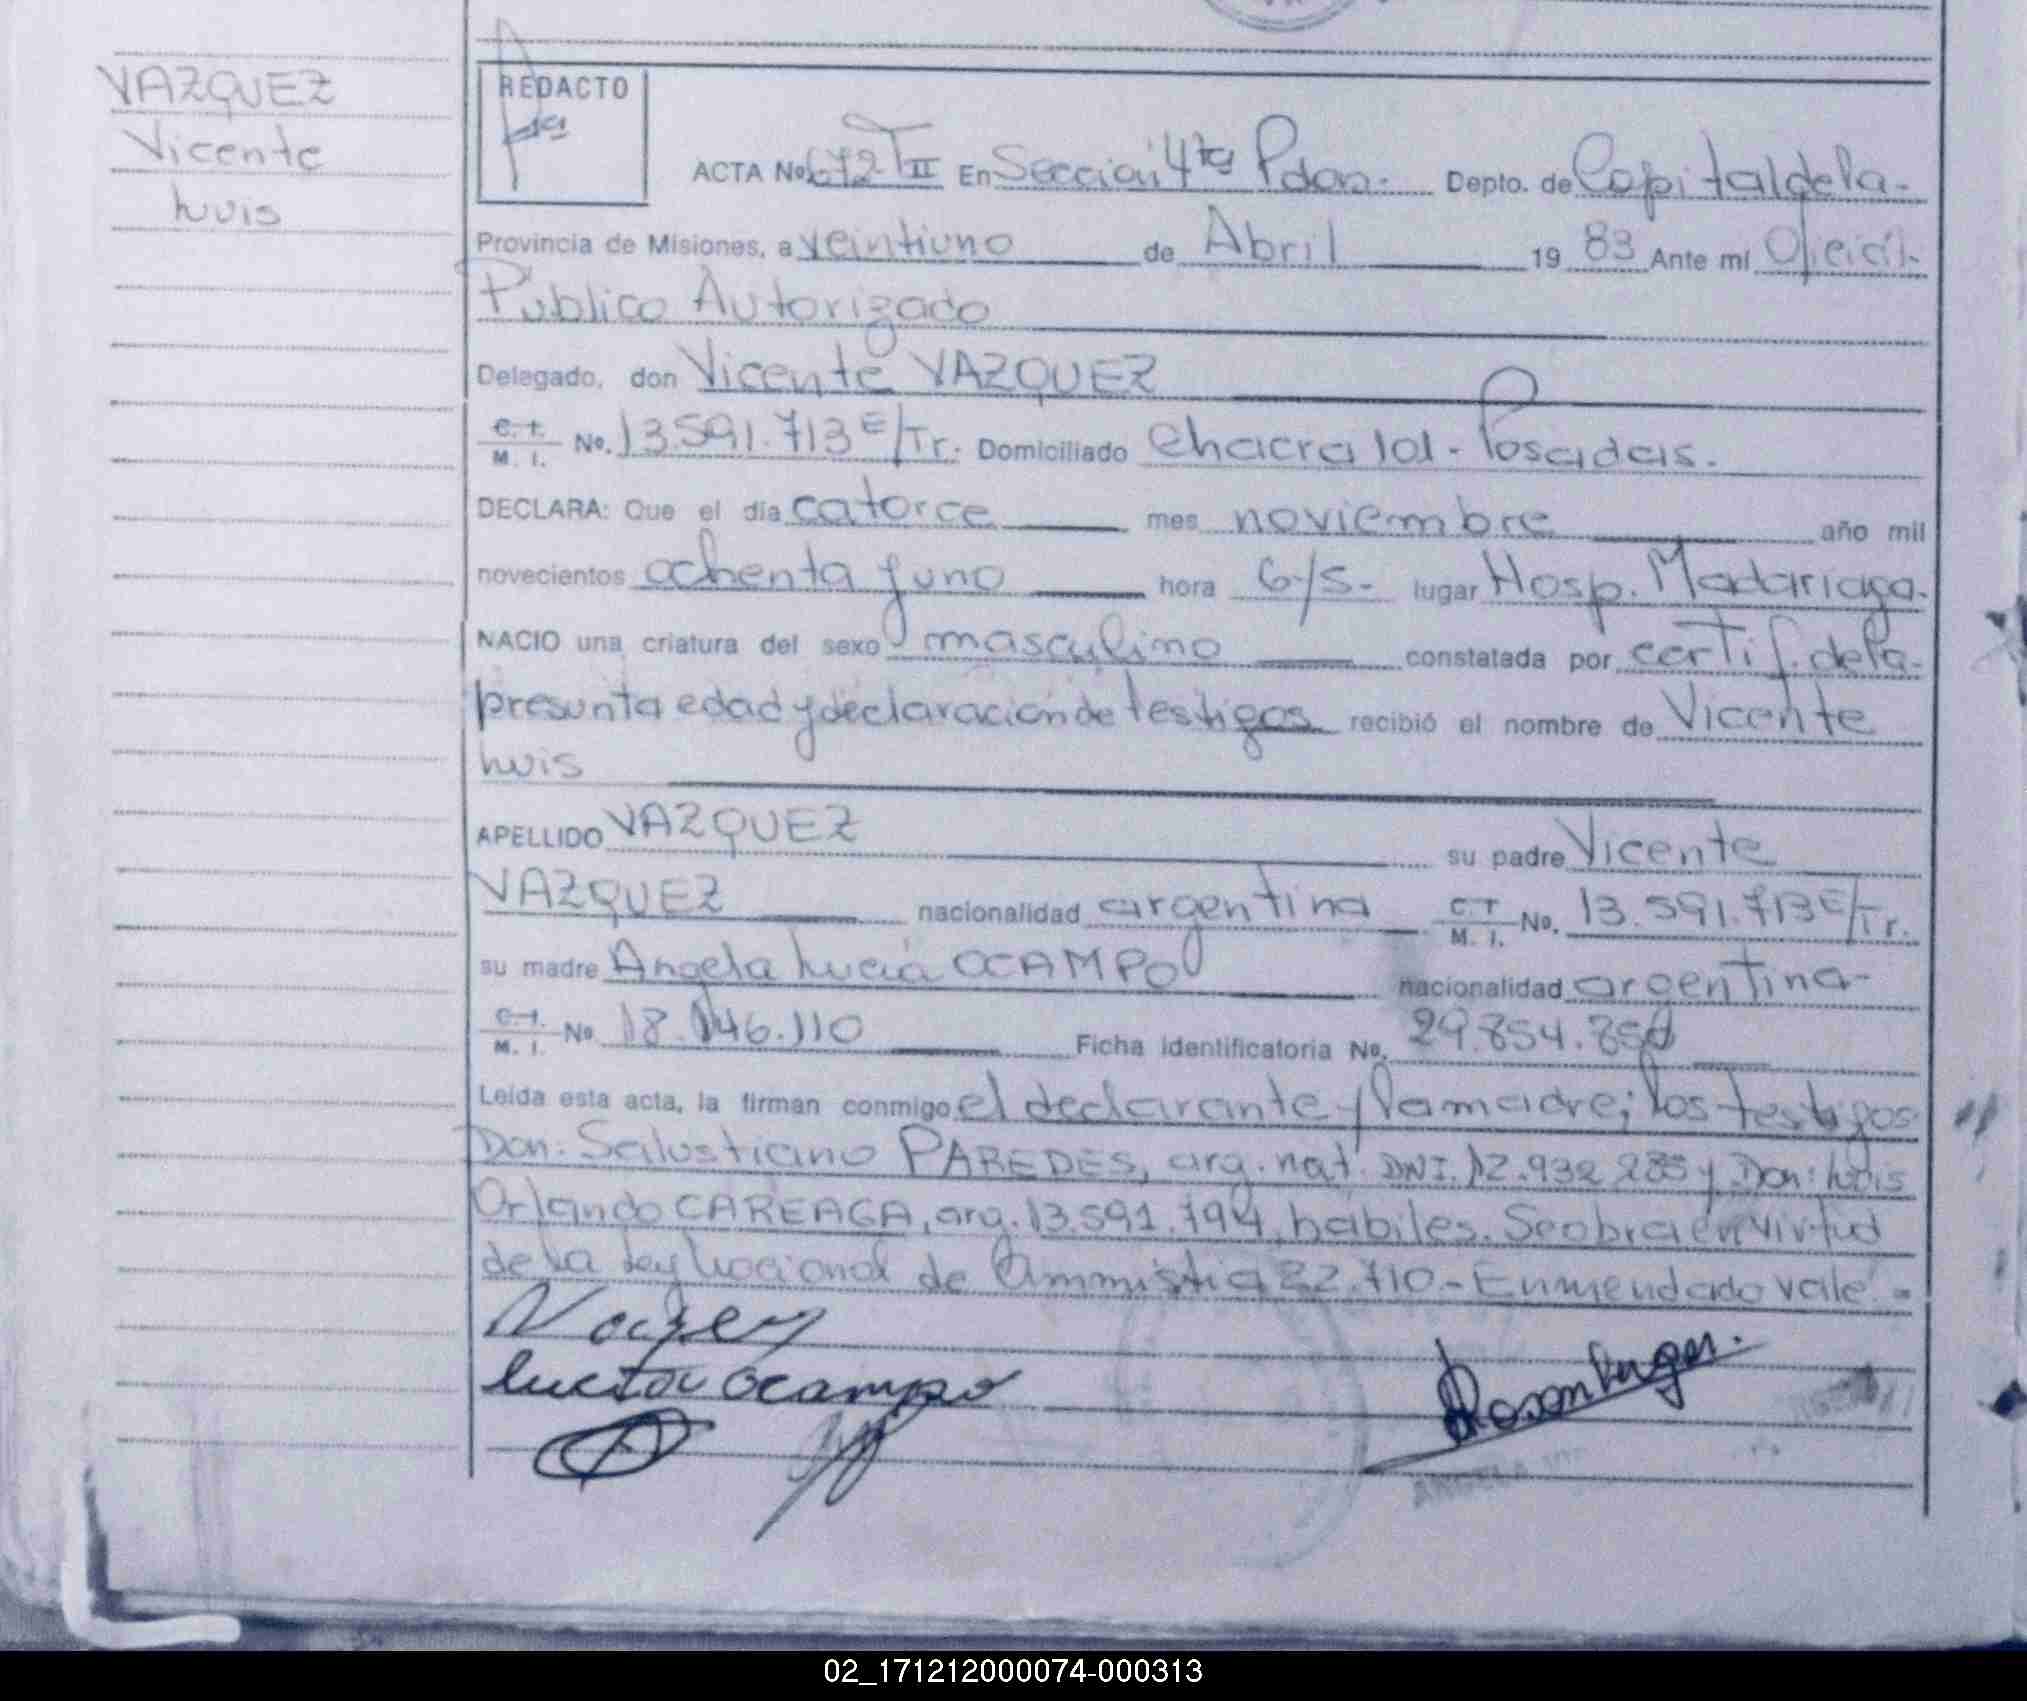 VAZQUEZ
Vicente
Luis
REDACTO
ACTA No 672 T II En Sección 4ta Pdas. Depto. de Capital de la
Provincia de Misiones, a veintiuno de Abril 19 83 Ante mí Oficial
Público Autorizado
Delegado, don Vicente VAZQUEZ
C. I. M. I. No. 13.591.713 E/Tr. Domiciliado Chacra 101 - Posadas.
DECLARA: Que el día catorce mes noviembre año mil
novecientos ochenta y uno hora 6/s. lugar Hosp. Madariaga.
NACIO una criatura del sexo masculino constatada por certif. de la
presunta edad y declaración de testigos recibió el nombre de Vicente
Luis
APELLIDO VAZQUEZ su padre Vicente
VAZQUEZ nacionalidad argentina C. I. M. I. No. 13.591.713 E/Tr.
su madre Angela Lucia OCAMPO nacionalidad argentina
C. I. M. I. No. 18.146.110 Ficha Identificatoria No. 29.854.85
Leída esta acta, la firman conmigo el declarante y la madre; los testigos
Don: Salustiano PAREDES, arg. nat. DNI. 12.932.285 y Don: Luis
Orlando CAREAGA, arg. 13.591.794, habiles. Se obra en virtud
de la Ley Nacional de Ammistia 22.710.- Enmendado vale.-
Lucia Ocampo
ANGELA
02_171212000074-000313